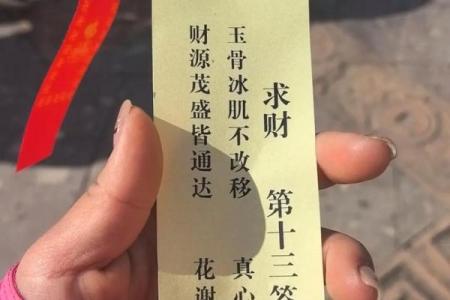 求财 第十三签
玉骨冰肌不改移 真心
财源茂盛皆通达 花谢